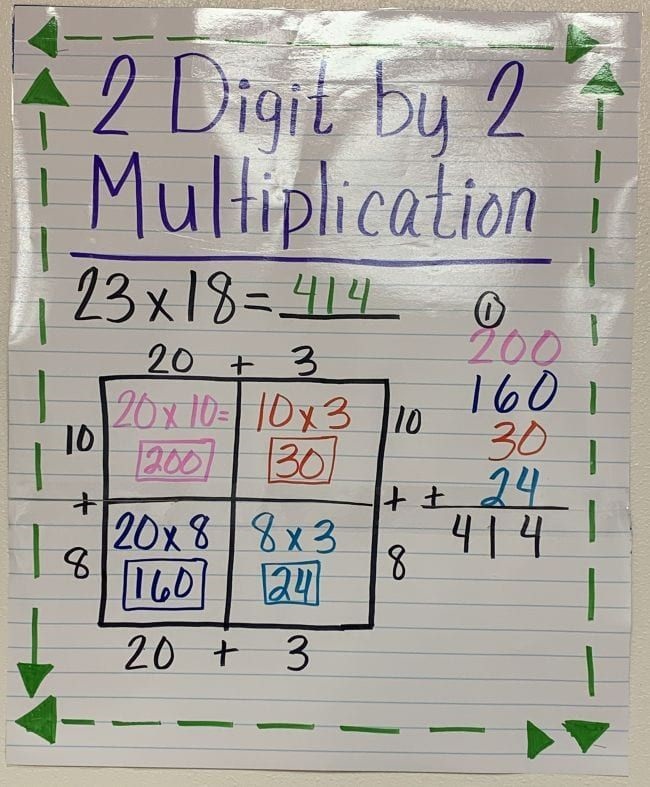 2 Digit by 2
Multiplication
23x18=414
20 + 3
20x10=
200
10x3
30
10
+
8
20x8
160
8x3
24
10
+
8
20 + 3
1
200
160
30
+ 24
414